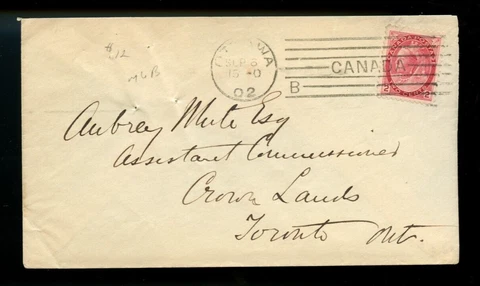 $12
OTTAWA
SEP 5
15 - 0
02
CANADA
B
2 2
Aubrey White Esq
Assistant Commissioner
Crown Lands
Toronto Ont.